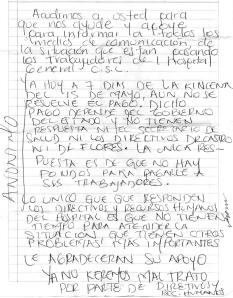 Acudimos a usted para
que nos ayude y apoye
para informar a todos los
medios de comunicacion, de
la situacion que estan pasando
los Trabajadores del Hospital
General C.S.L.
YA HOY A 7 DIAS DE LA KINCENA
DEL 15 DE MAYO, AUN NO SE
RESUELVE EL PAGO. DICHO
PAGO DEPENDE DEL GOBIERNO
DEL ESTADO Y NO TIENEN
RESPUESTA NI EL SECRETARIO DE
SALUD NI LOS DIRECTIVOS
NI DE FLORES. LA UNICA RES-
PUESTA ES DE QUE NO HAY
FONDOS PARA PAGARLE A
SUS TRABAJADORES.
LO UNICO QUE QUE RESPONDEN
LOS DIRECTIVOS Y RECURSOS HUMANOS
DEL HOSPITAL ES QUE NO TIENEN
TIEMPO PARA ATENDER LA
SITUACION, QUE TIENEN OTROS
PROBLEMAS MAS IMPORTANTES
LE AGRADECERAN SU APOYO
YA NO KEREMOS MALTRATO
POR PARTE DE DIRECTIVOS Y
REC. HUMANOS
ANONIMO